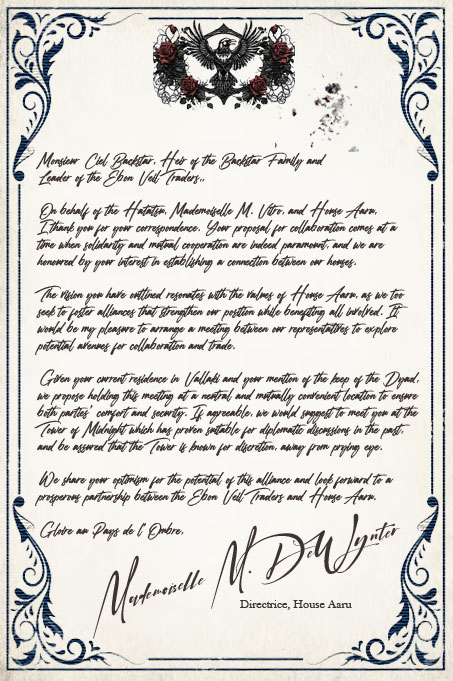 Monsieur Ciel Backstar, Heir of the Backstar Family and
Leader of the Ebon Veil Traders,,
On behalf of the Hatatsu, Mademoiselle M. Vitro, and House Aaru,
I thank you for your correspondence. Your proposal for collaboration comes at a
time when solidarity and mutual cooperation are indeed paramount, and we are
honoured by your interest in establishing a connection between our houses.
The vision you have outlined resonates with the values of House Aaru, as we too
seek to foster alliances that strengthen our position while benefiting all involved. It
would be my pleasure to arrange a meeting between our representatives to explore
potential avenues for collaboration and trade.
Given your current residence in Vallaki and your mention of the keep of the Dyad,
we propose holding this meeting at a neutral and mutually convenient location to ensure
both parties' comfort and security. If agreeable, we would suggest to meet you at the
Tower of Midnight which has proven suitable for diplomatic discussions in the past,
and be assured that the Tower is known for discretion, away from prying eye.
We share your optimism for the potential of this alliance and look forward to a
prosperous partnership between the Ebon Veil Traders and House Aaru.
Gloire au Pays de l'Ombre,
Mademoiselle M. DeWynter
Directrice, House Aaru